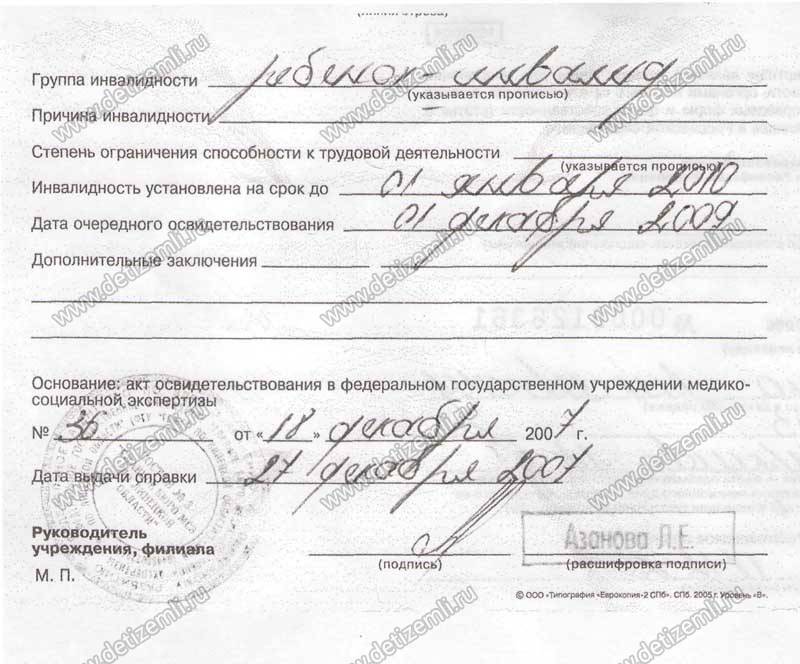 (линия отреза)
Группа инвалидности ребенок-инвалид
(указывается прописью)
Причина инвалидности
Степень ограничения способности к трудовой деятельности
(указывается прописью)
Инвалидность установлена на срок до 01 января 2010
Дата очередного освидетельствования 01 декабря 2009
Дополнительные заключения
Основание: акт освидетельствования в федеральном государственном учреждении медико-
социальной экспертизы
№ 36 от «18» декабря 2007 г.
Дата выдачи справки 27 декабря 2007
Руководитель
учреждения, филиала
Азанова Л.Е.
(подпись) (расшифровка подписи)
М. П.
© ООО «Типография «Еврокопия-2 СПб». СПб. 2005 г. Уровень «В».
www.detizemli.ru